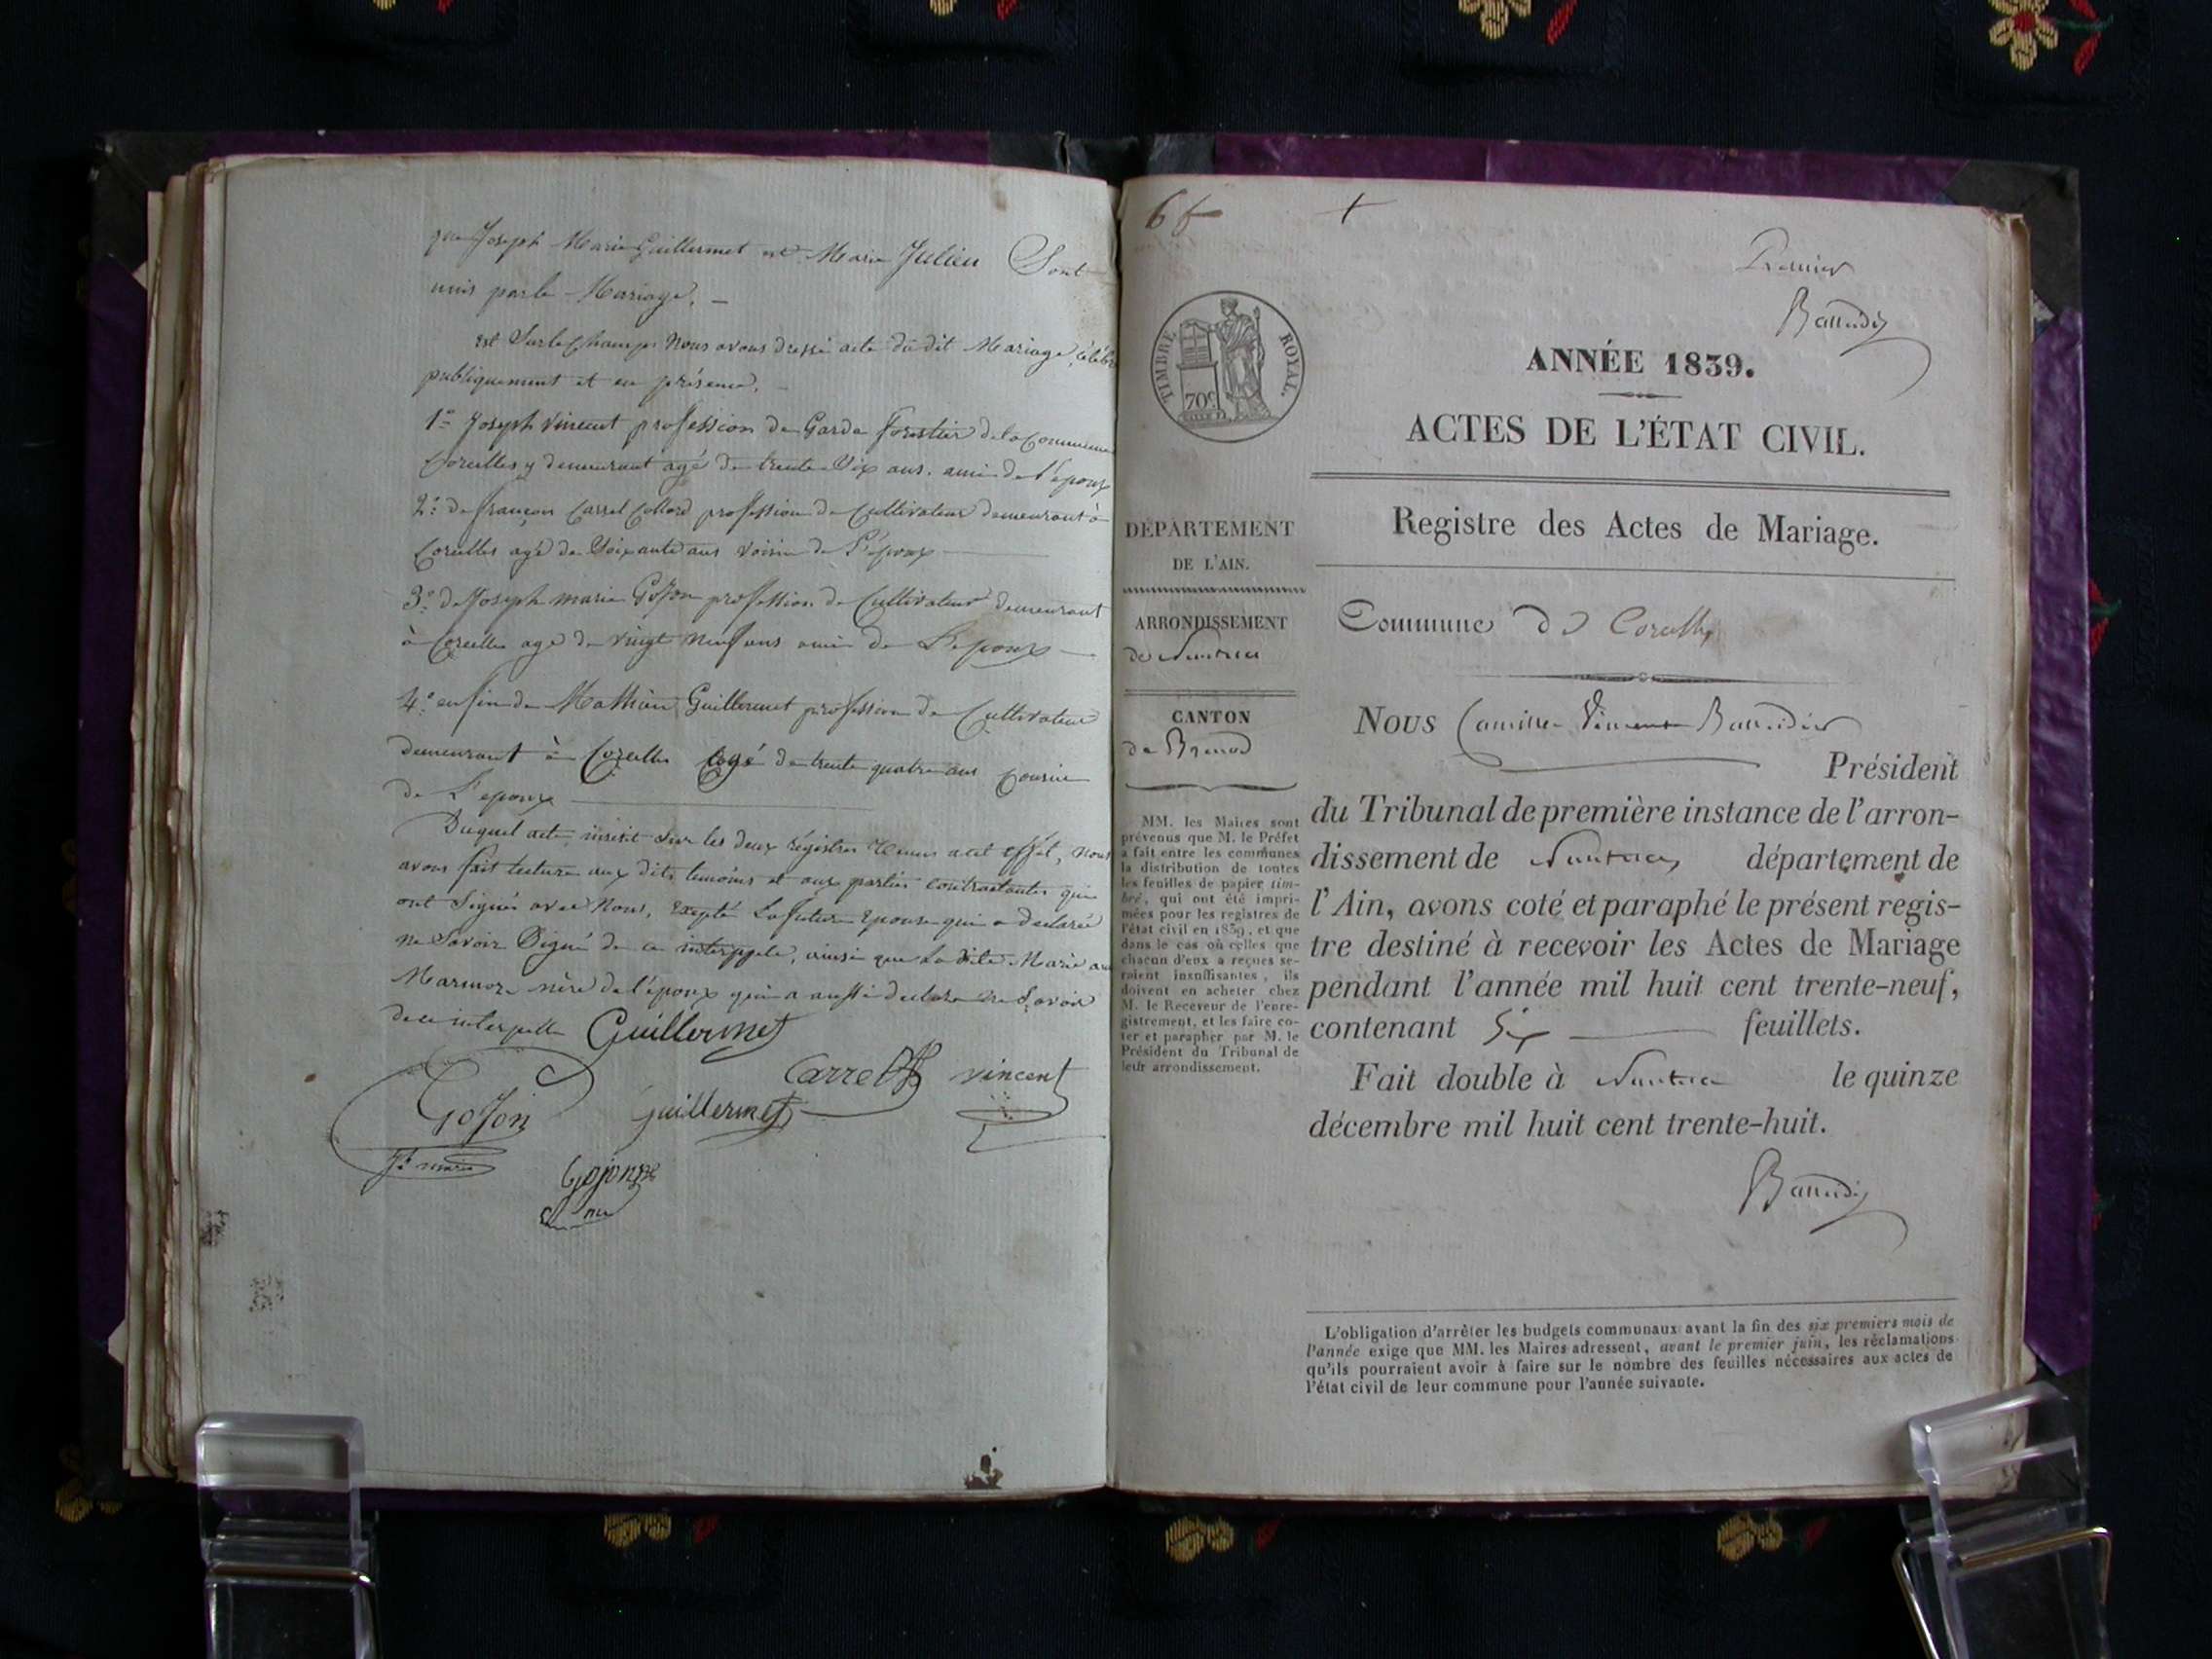 que Joseph Marie Guillermet et Marie Julien Sont
unis par le Mariage. —
et Sur le Champ Nous avons dressé acte du dit Mariage, célébré
publiquement et en présence. —
1º Joseph Vincent profession de Garde forestier de la Commune
Corcelles y demeurant agé de trente Six ans. ami de l'époux
2º de françois Carrel Collard profession de Cultivateur demeurant à
Corcelles agé de Soixante ans voisin de L'époux
3º de Joseph marie Gojon profession de Cultivateur demeurant
à Corcelles agé de vingt Neuf ans ami de L'epoux —
4º enfin de Mathieu Guillermet profession de Cultivateur
demeurant à Corcelles agé de trente quatre ans Cousin
de L'epoux
Duquel acte, inscrit Sur les deux régistres tenus a cet effet, Nous
avons fait lecture aux dits temoins et aux parties contractantes qui
ont Signés avec Nous, Excepté La future Epouse qui a declarée
ne Savoir Signé de ce interpellé, ainsi que La dite Marie
Marmoz mère de l'époux qui a aussi declaré ne Savoir
de ce interpellé Guillermet
Carrel vincent
Gojon Guillermet
Jh marie
Gojon
6 f +
Premier
Baudin
TIMBRE ROYAL.
70c
ANNÉE 1839.
ACTES DE L'ÉTAT CIVIL.
Registre des Actes de Mariage.
DÉPARTEMENT
DE L'AIN.
ARRONDISSEMENT
de Nantua
CANTON
de Brenod
MM. les Maires sont
prévenus que M. le Préfet
a fait entre les communes
la distribution de toutes
les feuilles de papier tim-
bré, qui ont été impri-
mées pour les registres de
l'état civil en 1839, et que
dans le cas où celles que
chacun d'eux a reçues se-
raient insuffisantes, ils
doivent en acheter chez
M. le Receveur de l'enre-
gistrement, et les faire co-
ter et parapher par M. le
Président du Tribunal de
leur arrondissement.
Commune de Corcelles
Nous Camille Vincent
Président
du Tribunal de première instance de l'arron-
dissement de Nantua, département de
l'Ain, avons coté et paraphé le présent regis-
tre destiné à recevoir les Actes de Mariage
pendant l'année mil huit cent trente-neuf,
contenant Six feuillets.
Fait double à Nantua le quinze
décembre mil huit cent trente-huit.
L'obligation d'arrêter les budgets communaux avant la fin des six premiers mois de
l'année exige que MM. les Maires adressent, avant le premier juin, les réclamations
qu'ils pourraient avoir à faire sur le nombre des feuilles nécessaires aux actes de
l'état civil de leur commune pour l'année suivante.